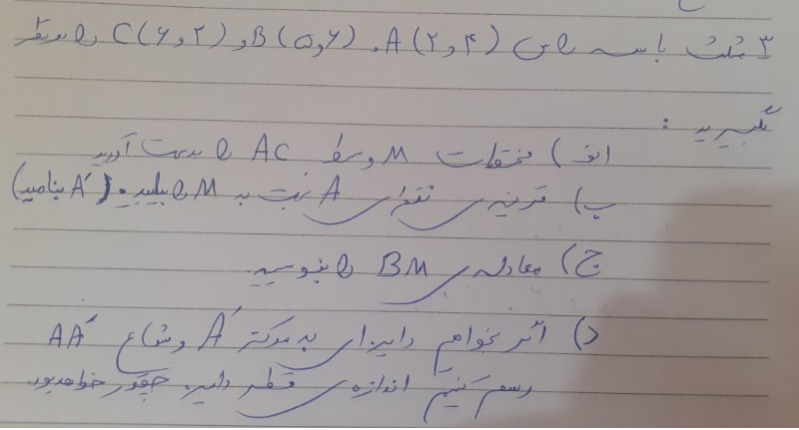 ۳ مثلث با سه رأس A(۲و۴) ، B(۵و۶) و C(۶و۲) را در نظر
بگیرید :
الف) مختصات M وسط AC را بدست آورید
ب) قرینه ی نقطه ی A نسبت به M را بیابید. (A′ بنامید)
ج) معادله ی BM را بنویسید.
د) اگر بخواهیم دایره ای به مرکز A′ و شعاع AA′
رسم کنیم اندازه ی قطر دایره چقدر خواهد بود.